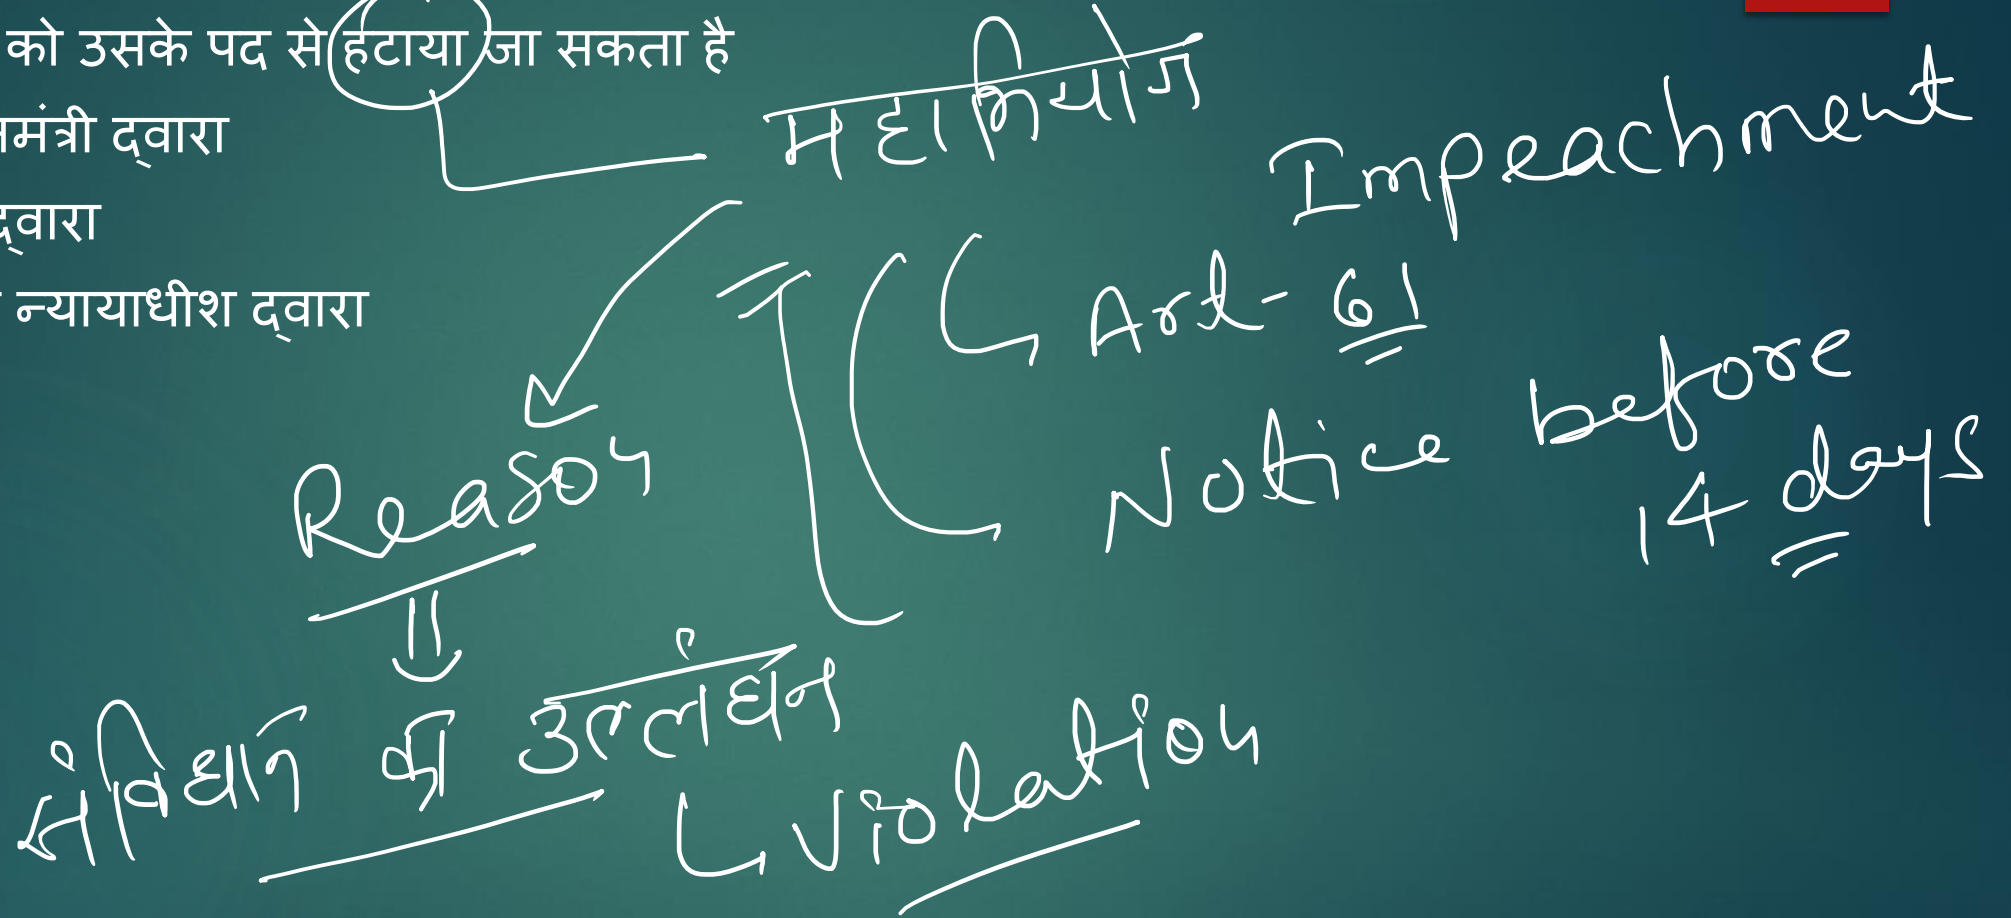 को उसके पद से हटाया जा सकता है
मंत्री द्वारा
द्वारा
न्यायाधीश द्वारा
महाभियोग
Impeachment
Art-61
Notice before
14 days
Reason
संविधान का उल्लंघन
Violation